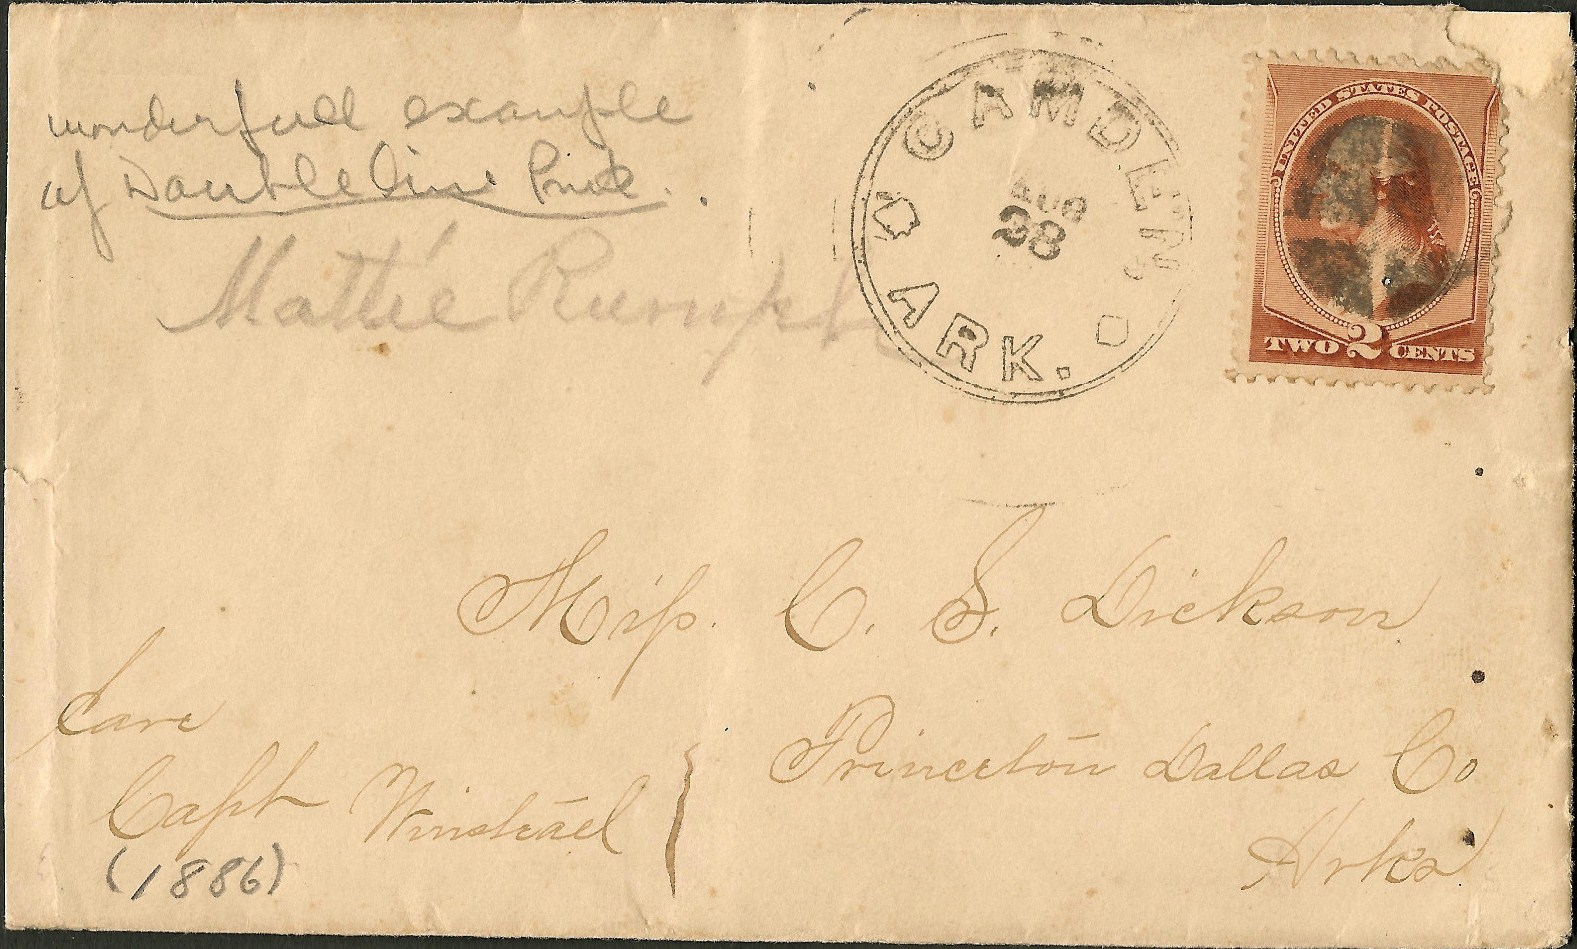 wonderfull example
of Double line Pmk.
Mattie Rumph
CAMDEN
AUG
28
ARK.
UNITED STATES POSTAGE
TWO 2 CENTS
Miss. C. S. Dickson
Care
Capt Winstead
Princeton Dallas Co
Arks
(1886)